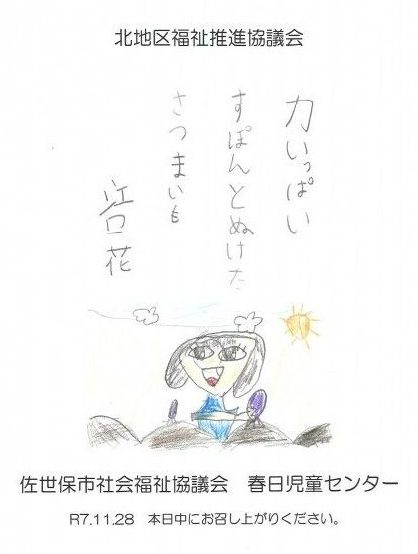 北地区福祉推進協議会
力いっぱい
すぽんとぬけた
さつまいも
江口花
佐世保市社会福祉協議会　春日児童センター
R7.11.28　本日中にお召し上がりください。